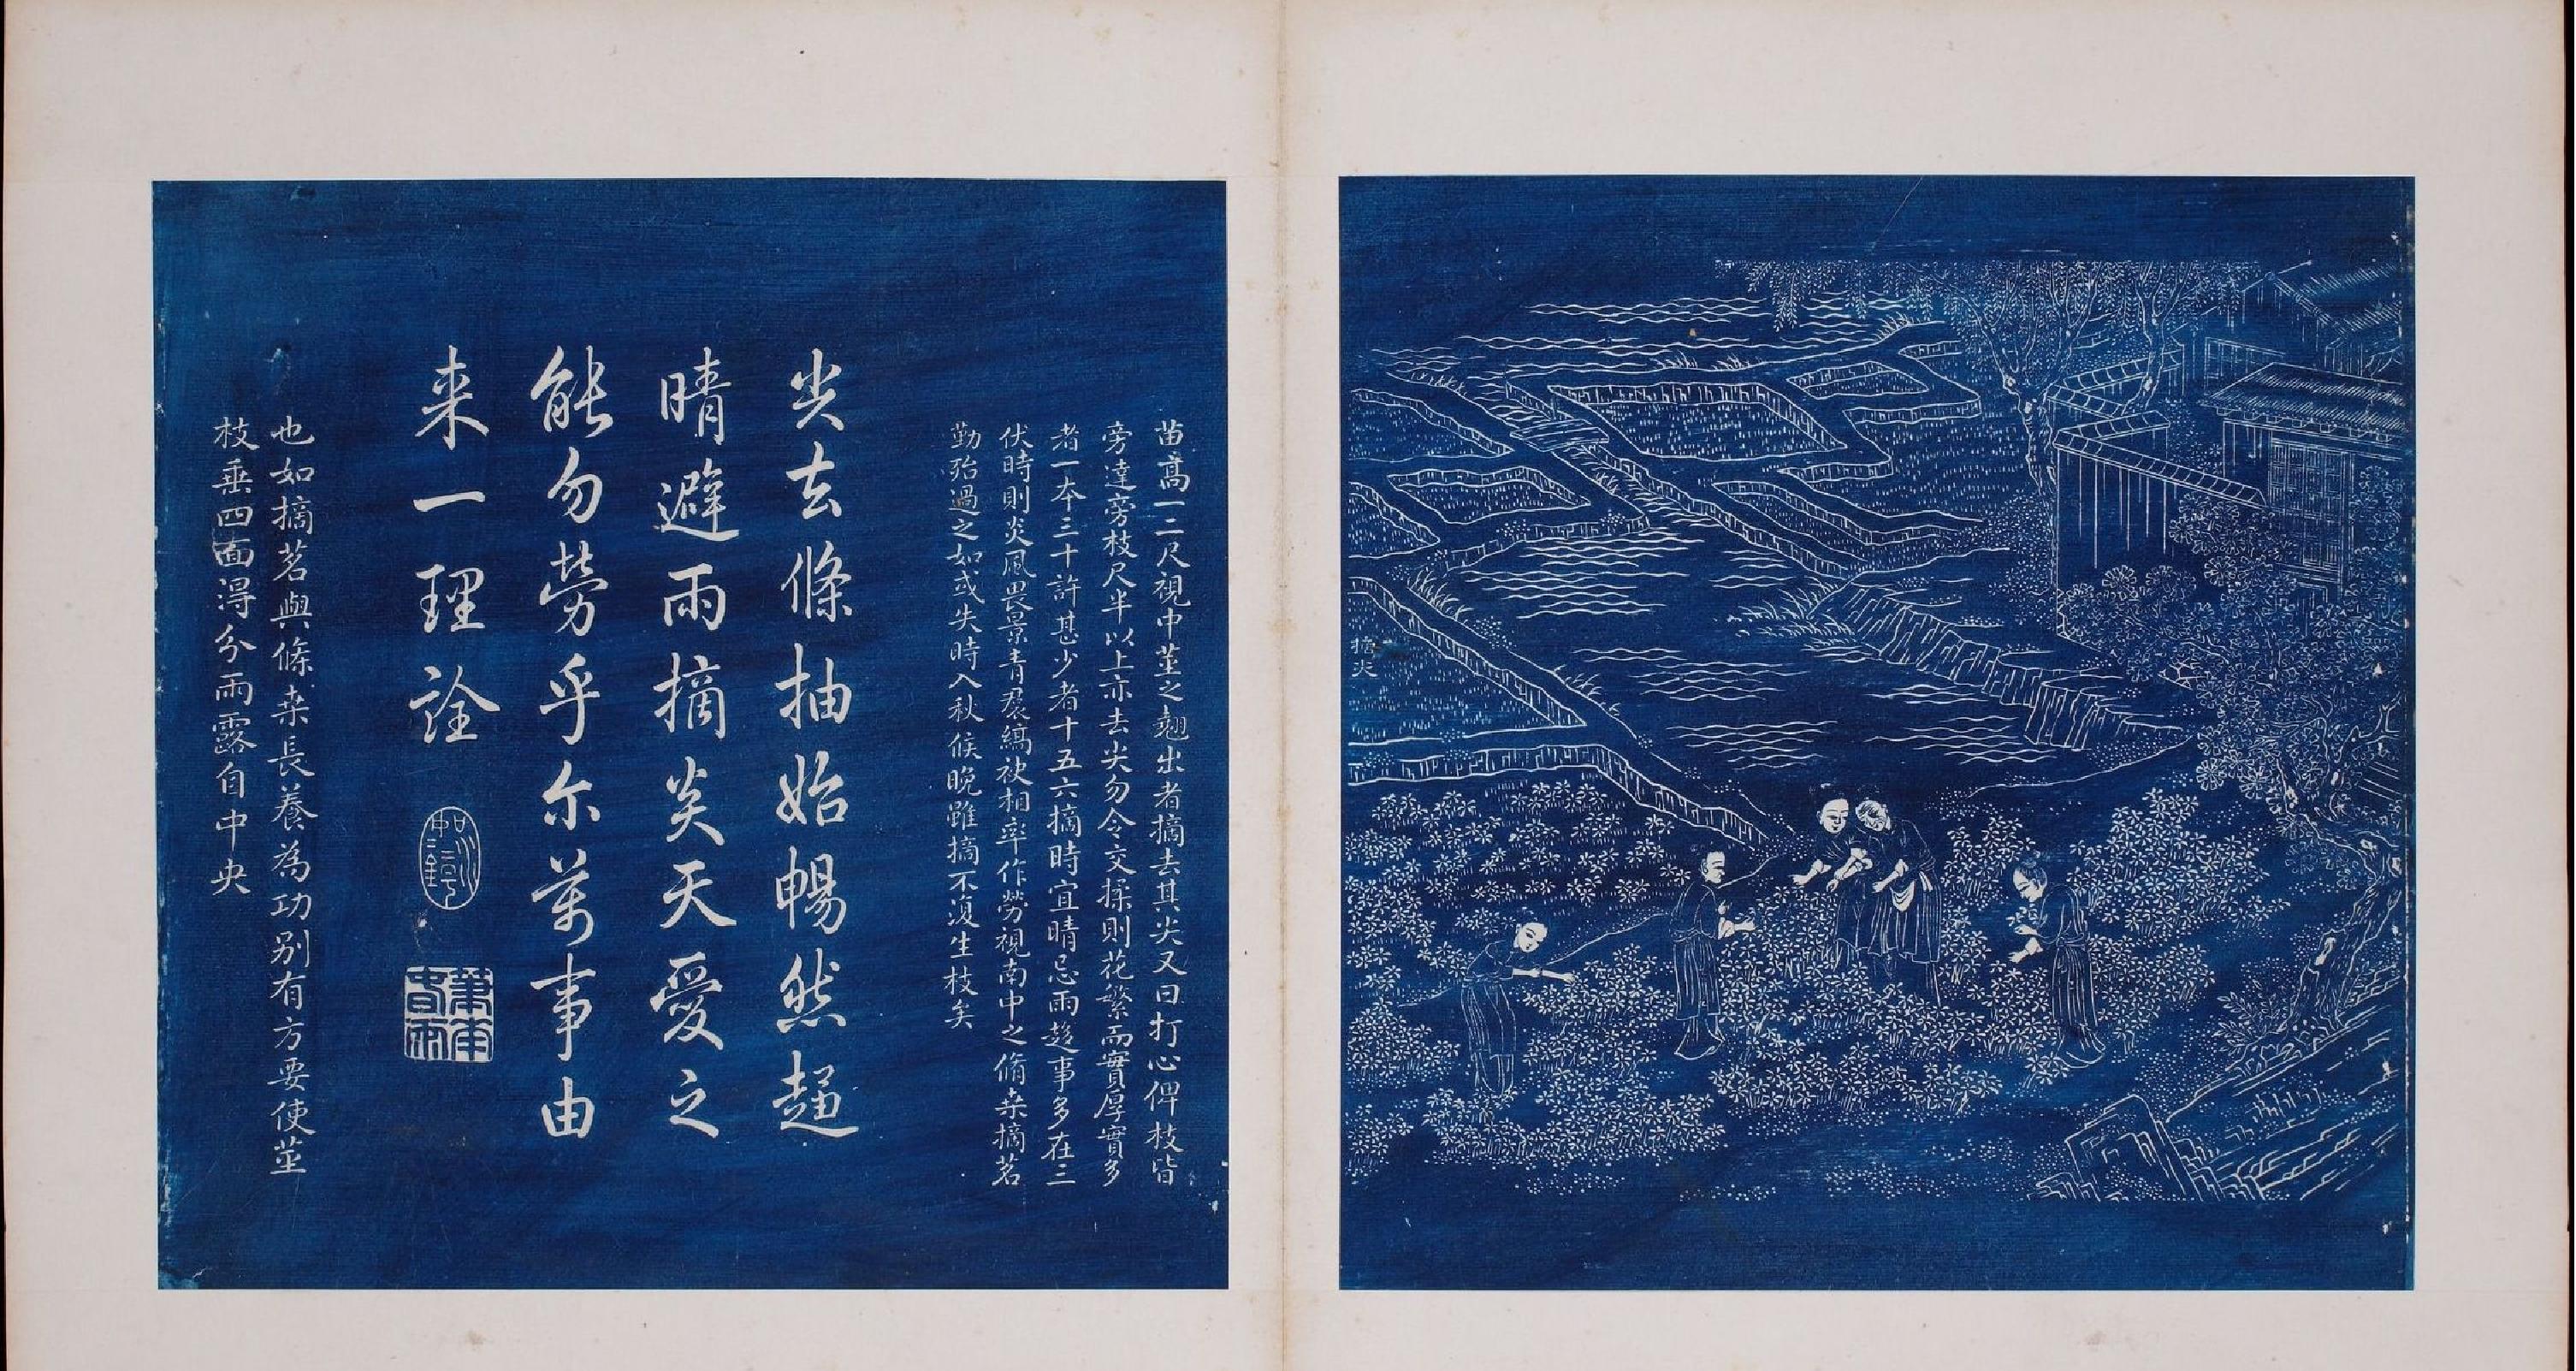 摘尖
苗高一二尺視中莖之翹出者摘去其尖又曰打心俾枝皆
旁達旁枝尺半以上亦去尖勿令交揉則花繁而實厚實多
者一本三十許甚少者十五六摘時宜晴忌雨趍事多在三
伏時則炎風畏景青裠縞袂相率作勞視南中之脩桑摘茗
勤殆過之如或失時入秋候晚雖摘不復生枝矣
尖去條抽始暢然趍
晴避雨摘尖天愛之
能勿勞乎尔萬事由
来一理詮
也如摘茗與條桑長養為功别有方要使莖
枝垂四面得分雨露自中央